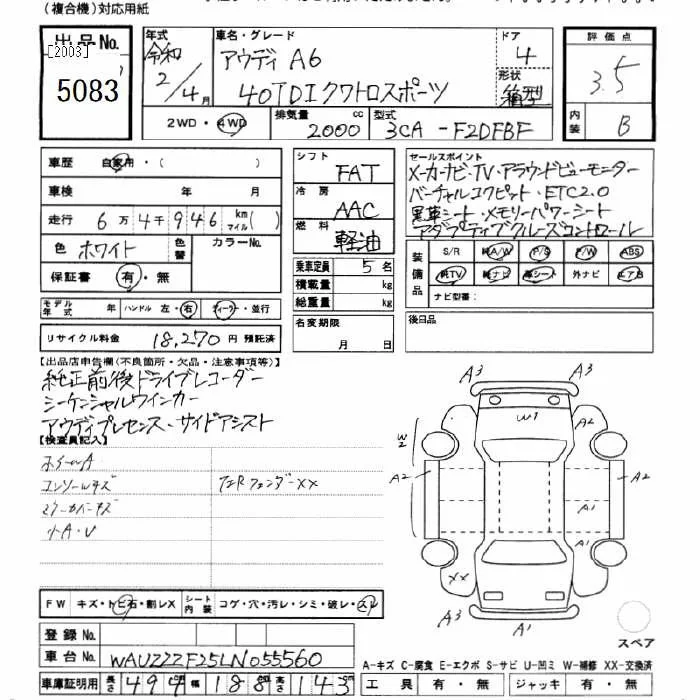 (複合機)対応用紙
出品No.
[2003]
5083
年式
令和
2/4月
車名・グレード
アウディ A6
40TDIクワトロスポーツ
ドア
4
形状
箱型
評価点
3.5
内装
B
2WD・4WD
排気量
2000 cc
型式
3CA-F2DFBF
車歴 自家用・( )
車検 年 月
走行 6万4千946 km マイル( )
色 ホワイト 色替 カラーNo.
保証書 有・無
モデル年式 年 ハンドル 左・右 ディーラー・並行
リサイクル料金 18,270円 預託済
シフト
FAT
冷房
AAC
燃料
軽油
乗車定員 5名
積載量 kg
総重量 kg
名変期限
月 日
セールスポイント
メーカーナビ・TV・アラウンドビューモニター
バーチャルコクピット・ETC2.0
黒革シート・メモリーパワーシート
アダプティブクルーズコントロール
装備品
S/R 純A/W P/S P/W ABS
純TV 純ナビ 革シート 外ナビ エアB
ナビ型番:
後日品
【出品店申告欄(不良箇所・欠品・注意事項等)】
純正前後ドライブレコーダー
シーケンシャルウインカー
アウディプレセンス・サイドアシスト
【検査員記入】
ホイールA
コンソールキズ
小A・U
左Rフェンダーxx
A3
A3
W1
A2
W2
A2
A2
A1
A1
XX
A3
A1
FW キズ・トビ石・割レX
シート内装 コゲ・穴・汚レ・シミ・破レ・スレ
登録No.
車台No. WAUZZZF25LN055560
車庫証明用 長さ 494 幅 188 高さ 143
スペア
A-キズ C-腐食 E-エクボ S-サビ U-凹ミ W-補修 XX-交換済
工具 有・無 ジャッキ 有・無